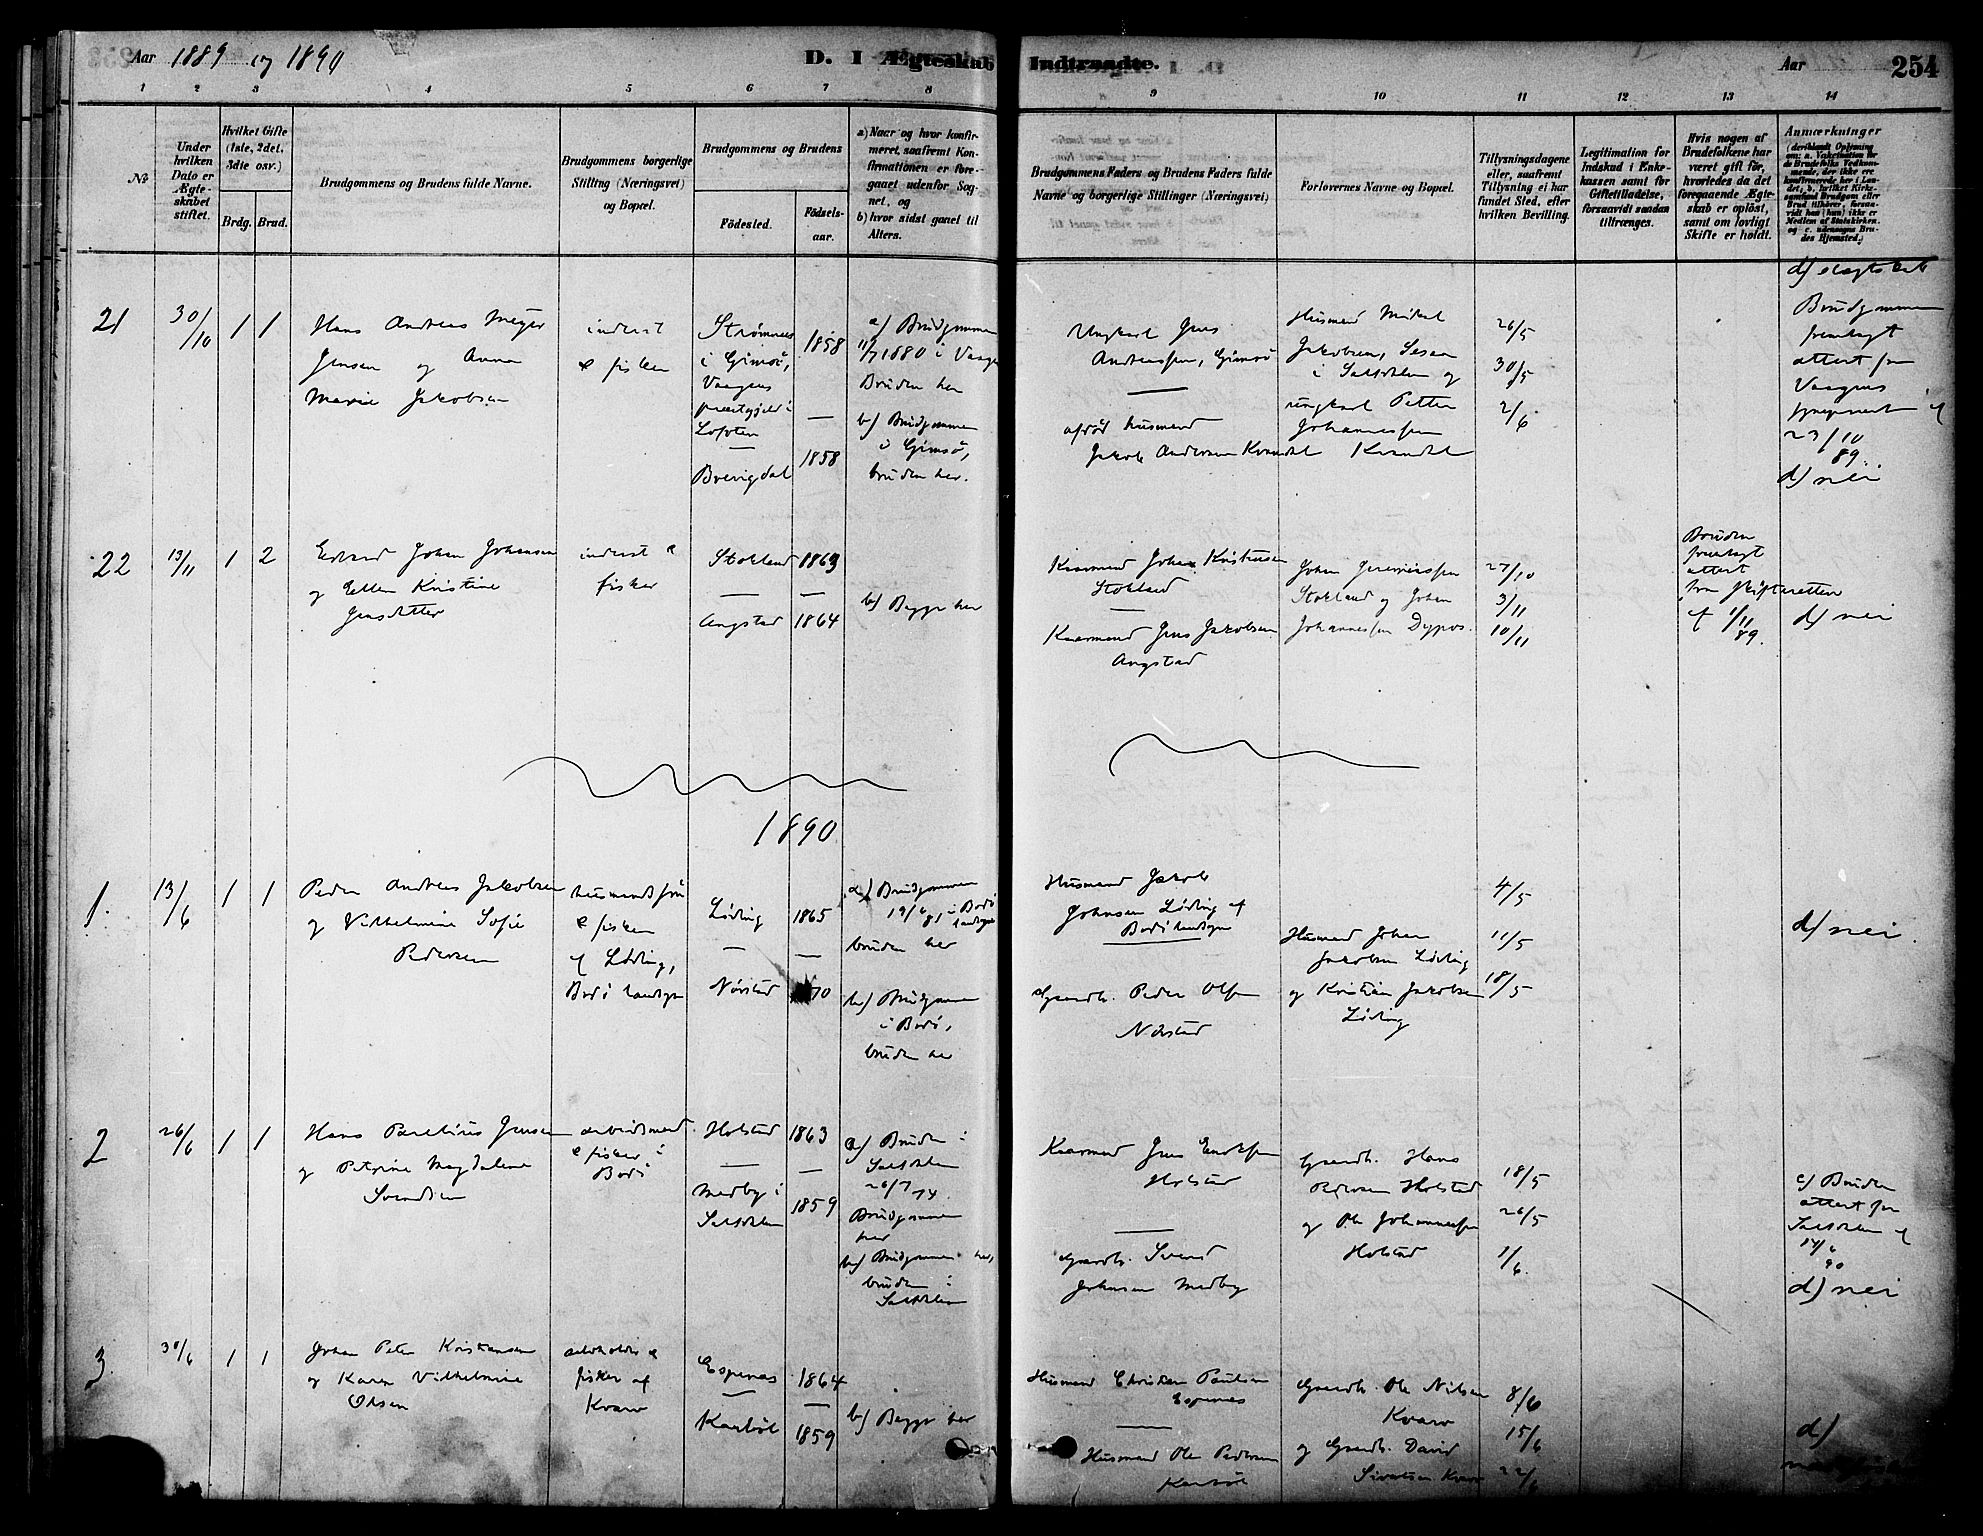 Aar 1889 og 1890
D. I Ægteskab
Indtraadte.
Aar
254
1 2 3 4 5 6 7 8
9 10 11 12 13 14
No
Under hvilken Dato er Ægteskabet stiftet.
Hvilket Gifte (1ste, 2det, 3die osv.)
Brdg. Brud.
Brudgommens og Brudens fulde Navne.
Brudgommens borgerlige Stilling (Næringsvei) og Bopæl.
Brudgommens og Brudens
Fødested.
Fødselsaar.
a) Naar og hvor konfirmeret, saafremt Konfirmationen er foregaaet udenfor Sognet, og
b) hvor sidst gaaet til Alters.
Brudgommens Faders og Brudens Faders fulde Navne og borgerlige Stillinger (Næringsvei)
Forlovernes Navne og Bopæl.
Tillysningsdagene eller, saafremt Tillysning ei har fundet Sted, efter hvilken Bevilling.
Legitimation for Indskud i Enkekassen samt for Giftetilladelse, forsaavidt saadan tiltrænges.
Hvis nogen af Brudefolkene har været gift før, hvorledes da det foregaaende Ægteskab er opløst, samt om lovligt Skifte er holdt.
Anmærkninger
21
30/10
1 1
Hans Andreas Meyer
Jensen og Anna
Marie Jakobsen
inderst
& fisker
Strømnes
i Gimsø,
Vaagens
præstegjeld i
Lofoten
Brevigdal
1858
1858
a) Brudgommen
11/7 1880 i Vaagen
Bruden her
b) Brudgommen
i Gimsø,
bruden her.
Ungkarl Jens
Andreassen, Gimsø
afdød husmand
Jakob Andersen Kvandal
Husmand Mikal
Jakobsen,
i Saltdalen og
ungkarl Petter
Johannessen
Kvandal
26/5
30/5
2/6
Brudgommen
fremlagt
attest fra
Vaagens
23/10
89.
d) nei
22
13/11
1 2
Edvard Johan Johansen
og Ellen Kristine
Jensdatter
inderst &
fisker
Stokland
Angstad
1869
1864
b) Begge her
Kaarmand Johan Kristensen
Stokland
Kaarmand Jens Jakobsen
Angstad
Johan Jeremiassen
Stokland og Johan
Johannessen Dypos.
27/10
3/11
10/11
Bruden
fremlagt
attest
fra Skifteretten
af 1/11
89.
d) nei
1890
1.
13/6
1 1
Peder Andreas Jakobsen
og Vilhelmine Sofie
Pedersen
husmandssøn
& fisker
af Løding,
Bodø landsogn
Løding
Nørstad
1865
70
a) Brudgommen
19/6 81 i Bodø
landsogn
bruden her
b) Brudgommen
i Bodø,
bruden her
Husmand Jakob
Johnsen Løding af
Bodø landsogn
Gaardb. Peder Olsen
Nørstad
Husmand Johan
Jakobsen Løding
og Kristian Jakobsen
Løding
4/5
11/5
18/5
d) nei.
2
26/6
1 1
Hans Parelius Jensen
og Petrine Magdalene
Svendsen
arbeidsmand
& fisker i
Bodø
Holstad
Medby i
Saltdalen
1863
1859
a) Bruden i
Saltdalen
26/7 74
Brudgommen
her
b) Brudgommen her,
bruden i
Saltdalen
Kaarmand Jens
Holstad
Gaardb. Svend
Johnsen Medby
Gaardb. Hans
Pedersen Holstad
og Ole Johannessen
Holstad
18/5
26/5
1/6
c) Bruden
attest fra
Saltdalen af
14/6
90
d) nei
3
30/6
1 1
Johan Peter Kristiansen
og Karen Vilhelmine
Olsen
fisker af
Kvarv
Espenes
Karbøl
1864
1859
b) Begge her
Husmand Christian Paulsen
Espenes
Husmand Ole Pedersen
Karbøl
Gaardb. Ole Nilsen
Kvarv
og Gaardb. David
Sivertsen Kvarv
8/6
15/6
22/6
d)